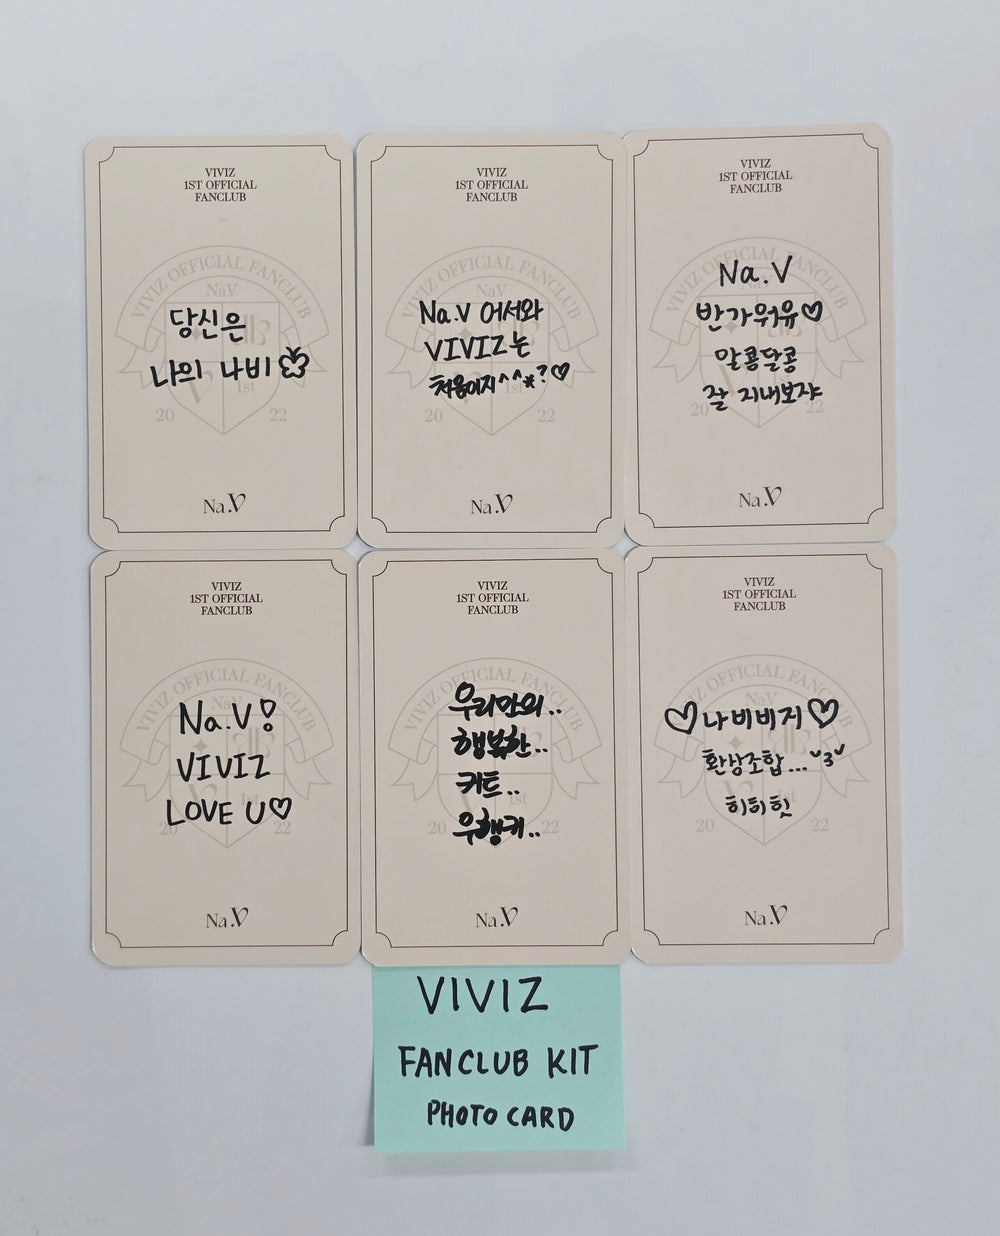 VIVIZ
1ST OFFICIAL
FANCLUB
VIVIZ OFFICIAL FANCLUB
NaV
당신은
나의 나비
1st
20 22
Na.V
VIVIZ
1ST OFFICIAL
FANCLUB
VIVIZ OFFICIAL FANCLUB
NaV
Na.V 어서와
VIVIZ는
처음이지^^*?♡
1st
20 22
Na.V
VIVIZ
1ST OFFICIAL
FANCLUB
VIVIZ OFFICIAL FANCLUB
Na.V
반가워유♡
알콩달콩
잘 지내보쟈
22
Na.V
VIVIZ
1ST OFFICIAL
FANCLUB
VIVIZ OFFICIAL FANCLUB
NaV
Na.V!
VIVIZ
LOVE U♡
1st
20
Na.V
VIVIZ
1ST OFFICIAL
FANCLUB
VIVIZ OFFICIAL FANCLUB
NaV
우리만의..
행복한..
키트..
우행키..
1st
20 22
Na.V
VIVIZ
1ST OFFICIAL
FANCLUB
VIVIZ OFFICIAL FANCLUB
NaV
♡나비비지♡
환상조합...˘3˘
히히힛
20 22
Na.V
VIVIZ
FANCLUB KIT
PHOTO CARD